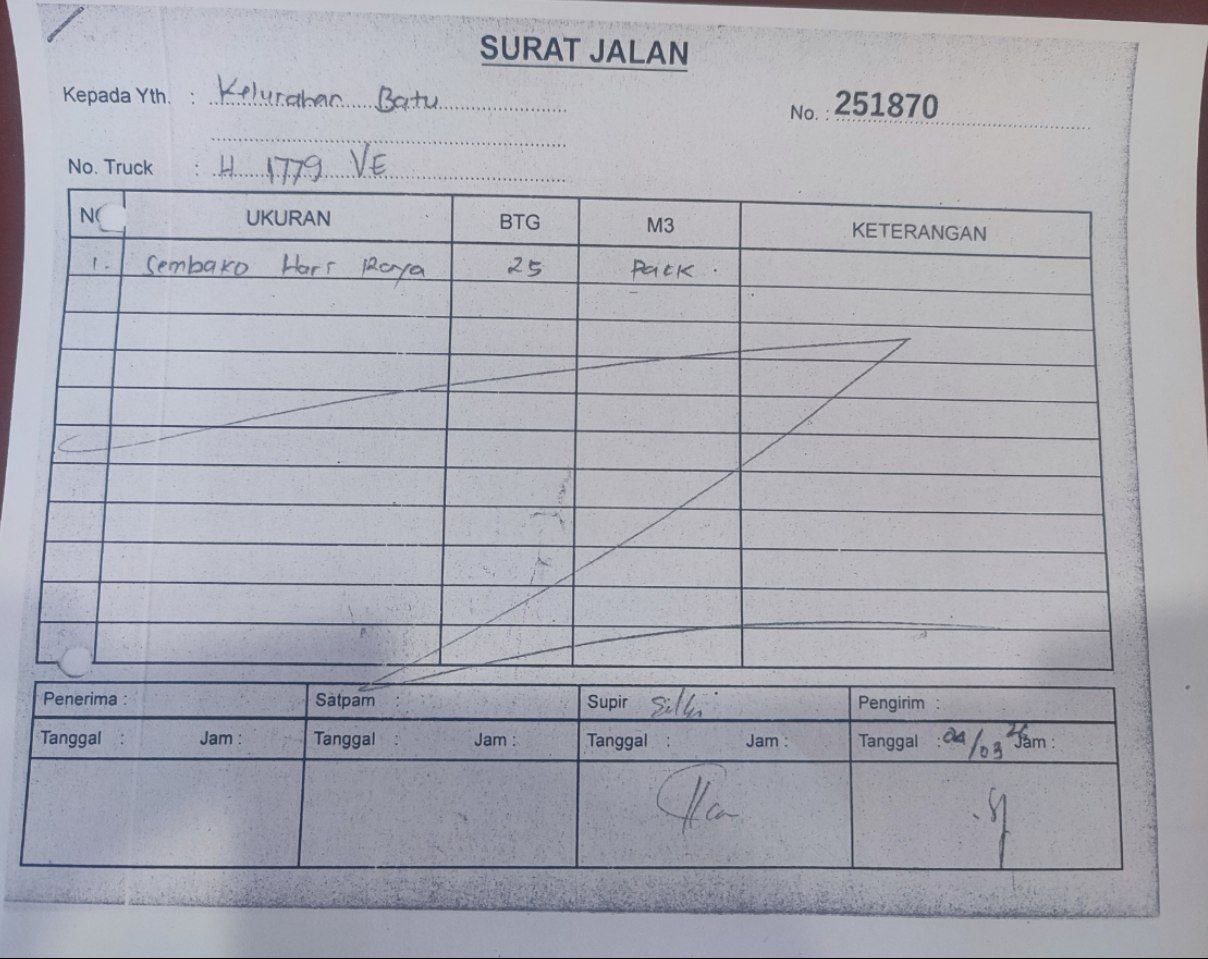 SURAT JALAN
Kepada Yth. : Kelurahan Batu
No. : 251870
No. Truck : H 1779 VE
NO UKURAN BTG M3 KETERANGAN
1. Sembako Hari Raya 25 Pack.
Penerima : Satpam : Supir Pengirim :
Tanggal : Jam : Tanggal : Jam : Tanggal : Jam : Tanggal : 04/03 26 Jam :